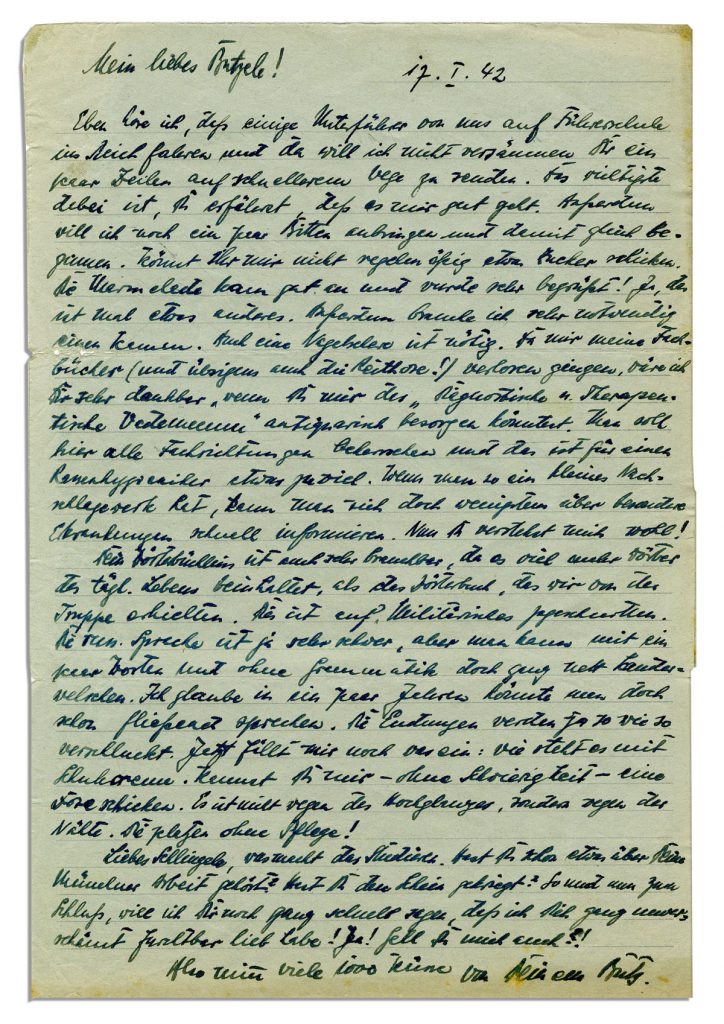 Mein liebes Butzele! 17. I. 42
Eben höre ich, daß einige Unterführer von uns auf Führerschule
ins Reich fahren und da will ich nicht versäumen Dir ein
paar Zeilen auf schnellerem Wege zu senden. Das wichtigste
dabei ist, Du erfährst, daß es mir gut geht. Außerdem
will ich noch ein paar Bitten anbringen und damit gleich be-
ginnen. Könnt Ihr mir nicht regelmäßig etwas Zucker schicken.
Die Marmelade kam gut an und wurde sehr begrüßt! Ja, das
ist mal etwas anderes. Außerdem brauche ich sehr notwendig
einen Kamm. Auch eine Nagelschere ist nötig. Da mir meine Fach-
bücher (und übrigens auch die Reithose!) verloren gingen, wäre ich
Dir sehr dankbar, wenn Du mir das "Diagnostische u. Therapeu-
tische Vademecum" antiquarisch besorgen könntest. Man soll
hier alle Fachrichtungen beherrschen und das ist für einen
Rassenhygieniker etwas zuviel. Wenn man so ein kleines Nach-
schlagewerk hat, kann man sich doch wenigstens über besondere
Erkrankungen schnell informieren. Nun Du verstehst mich wohl!
Dein Wörterbüchlein ist auch sehr brauchbar, da es viel mehr Wörter
des tägl. Lebens beinhaltet, als das Wörterbuch, das wir von der
Truppe erhielten. Das ist auf Militärisches zugeschnitten.
Die russ. Sprache ist ja sehr schwer, aber man kann mit ein
paar Worten und ohne Grammatik doch ganz nett kauder-
welschen. Ich glaube in ein paar Jahren könnte man doch
schon fließend sprechen. Die Endungen werden ja so wie so
verschluckt. Jetzt fällt mir noch was ein: wie steht es mit
Schuhcreme. Kannst Du mir – ohne Schwierigkeit – eine
Dose schicken. Es ist nicht wegen des Hochglanzes, sondern wegen der
Nähte. Die platzen ohne Pflege!
Liebes was macht das Studieren. Hast Du schon etwas über Deine
Münchner Arbeit gehört? Hast Du den Schein gekriegt? So und nun zum
Schluß, will ich Dir noch ganz schnell sagen, daß ich Dich ganz unver-
schämt furchtbar lieb habe! Ja! Gell Du mich auch?!
Also nun viele 1000 Küsse von Deinem Butz.